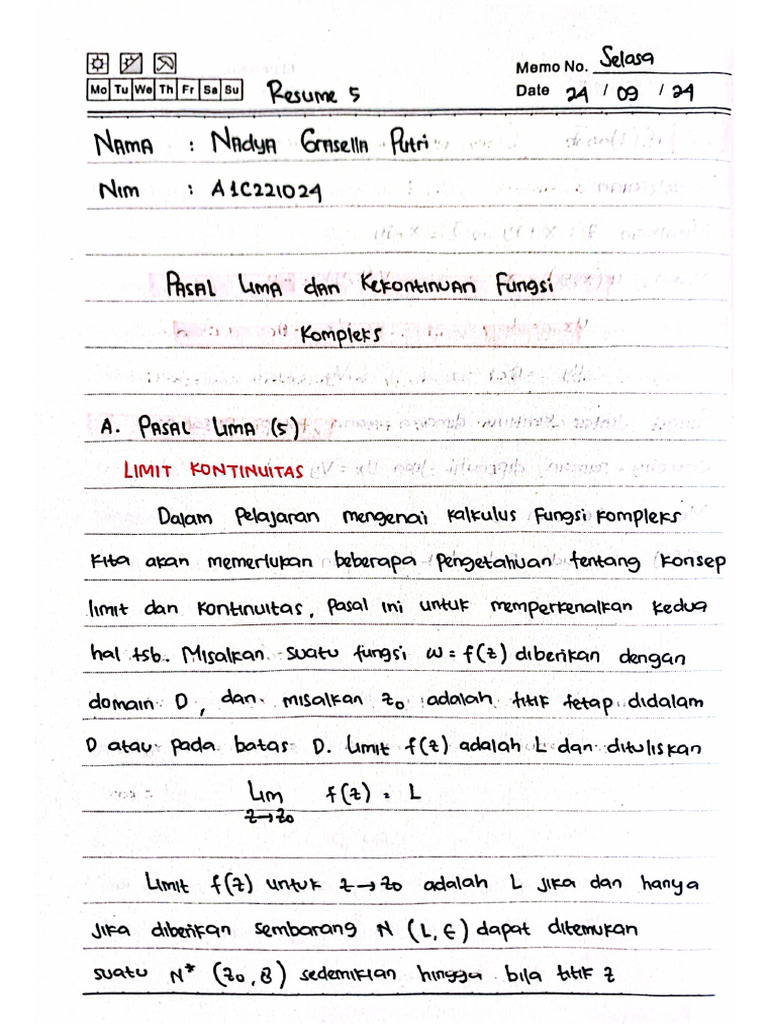 Memo No. Selasa
Mo Tu We Th Fr Sa Su
Resume 5
Date 24 / 09 / 24
Nama : Nadya Grasella Putri
Nim : A1C221024
Pasal Lima dan Kekontinuan Fungsi
Kompleks
A. Pasal Lima (5)
LIMIT KONTINUITAS
Dalam Pelajaran mengenai kalkulus Fungsi kompleks
kita akan memerlukan beberapa pengetahuan tentang konsep
limit dan kontinuitas, Pasal ini untuk memperkenalkan kedua
hal tsb. Misalkan suatu fungsi w = f(z) diberikan dengan
domain D, dan misalkan z₀ adalah titik tetap didalam
D atau pada batas D. Limit f(z) adalah L dan dituliskan
Lim f(z) = L
z→z₀
Limit f(z) untuk z→z₀ adalah L Jika dan hanya
Jika diberikan sembarang N (L, ϵ) dapat ditemukan
suatu N* (z₀, 8) sedemikian hingga bila titik z